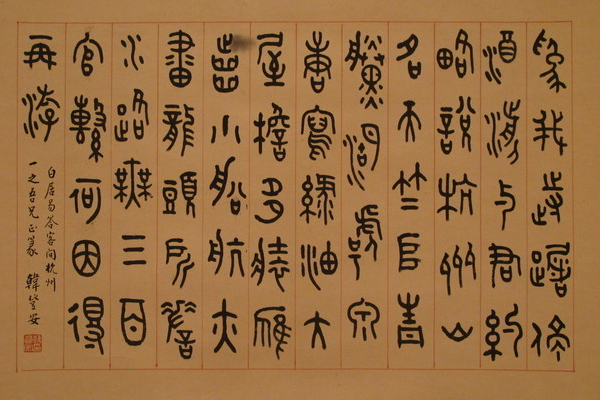 為我歭躇停
酒与君約
略說杭州山
名天竺𠂤青
黱湖號泉
唐寫綠油大
屋檐多裝雁
齒小船航亦
畫龍頭所嗟
水路無三百
官繫何因得
再游
白居易答客问杭州
一之吾兄正篆 韓登安